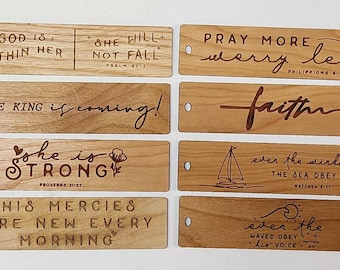 GOD IS
SHE WILL
NOT FALL
PSALM 46:5
PRAY MORE
worry le
PHILIPPIANS 4:
KING is coming!
faith
she is
STRONG
PROVERBS 31:25
even the wind
THE SEA OBEY
MATTHEW 8:27
HIS MERCIES
NEW EVERY
MORNING
even the
WAVES OBEY
his VOICE